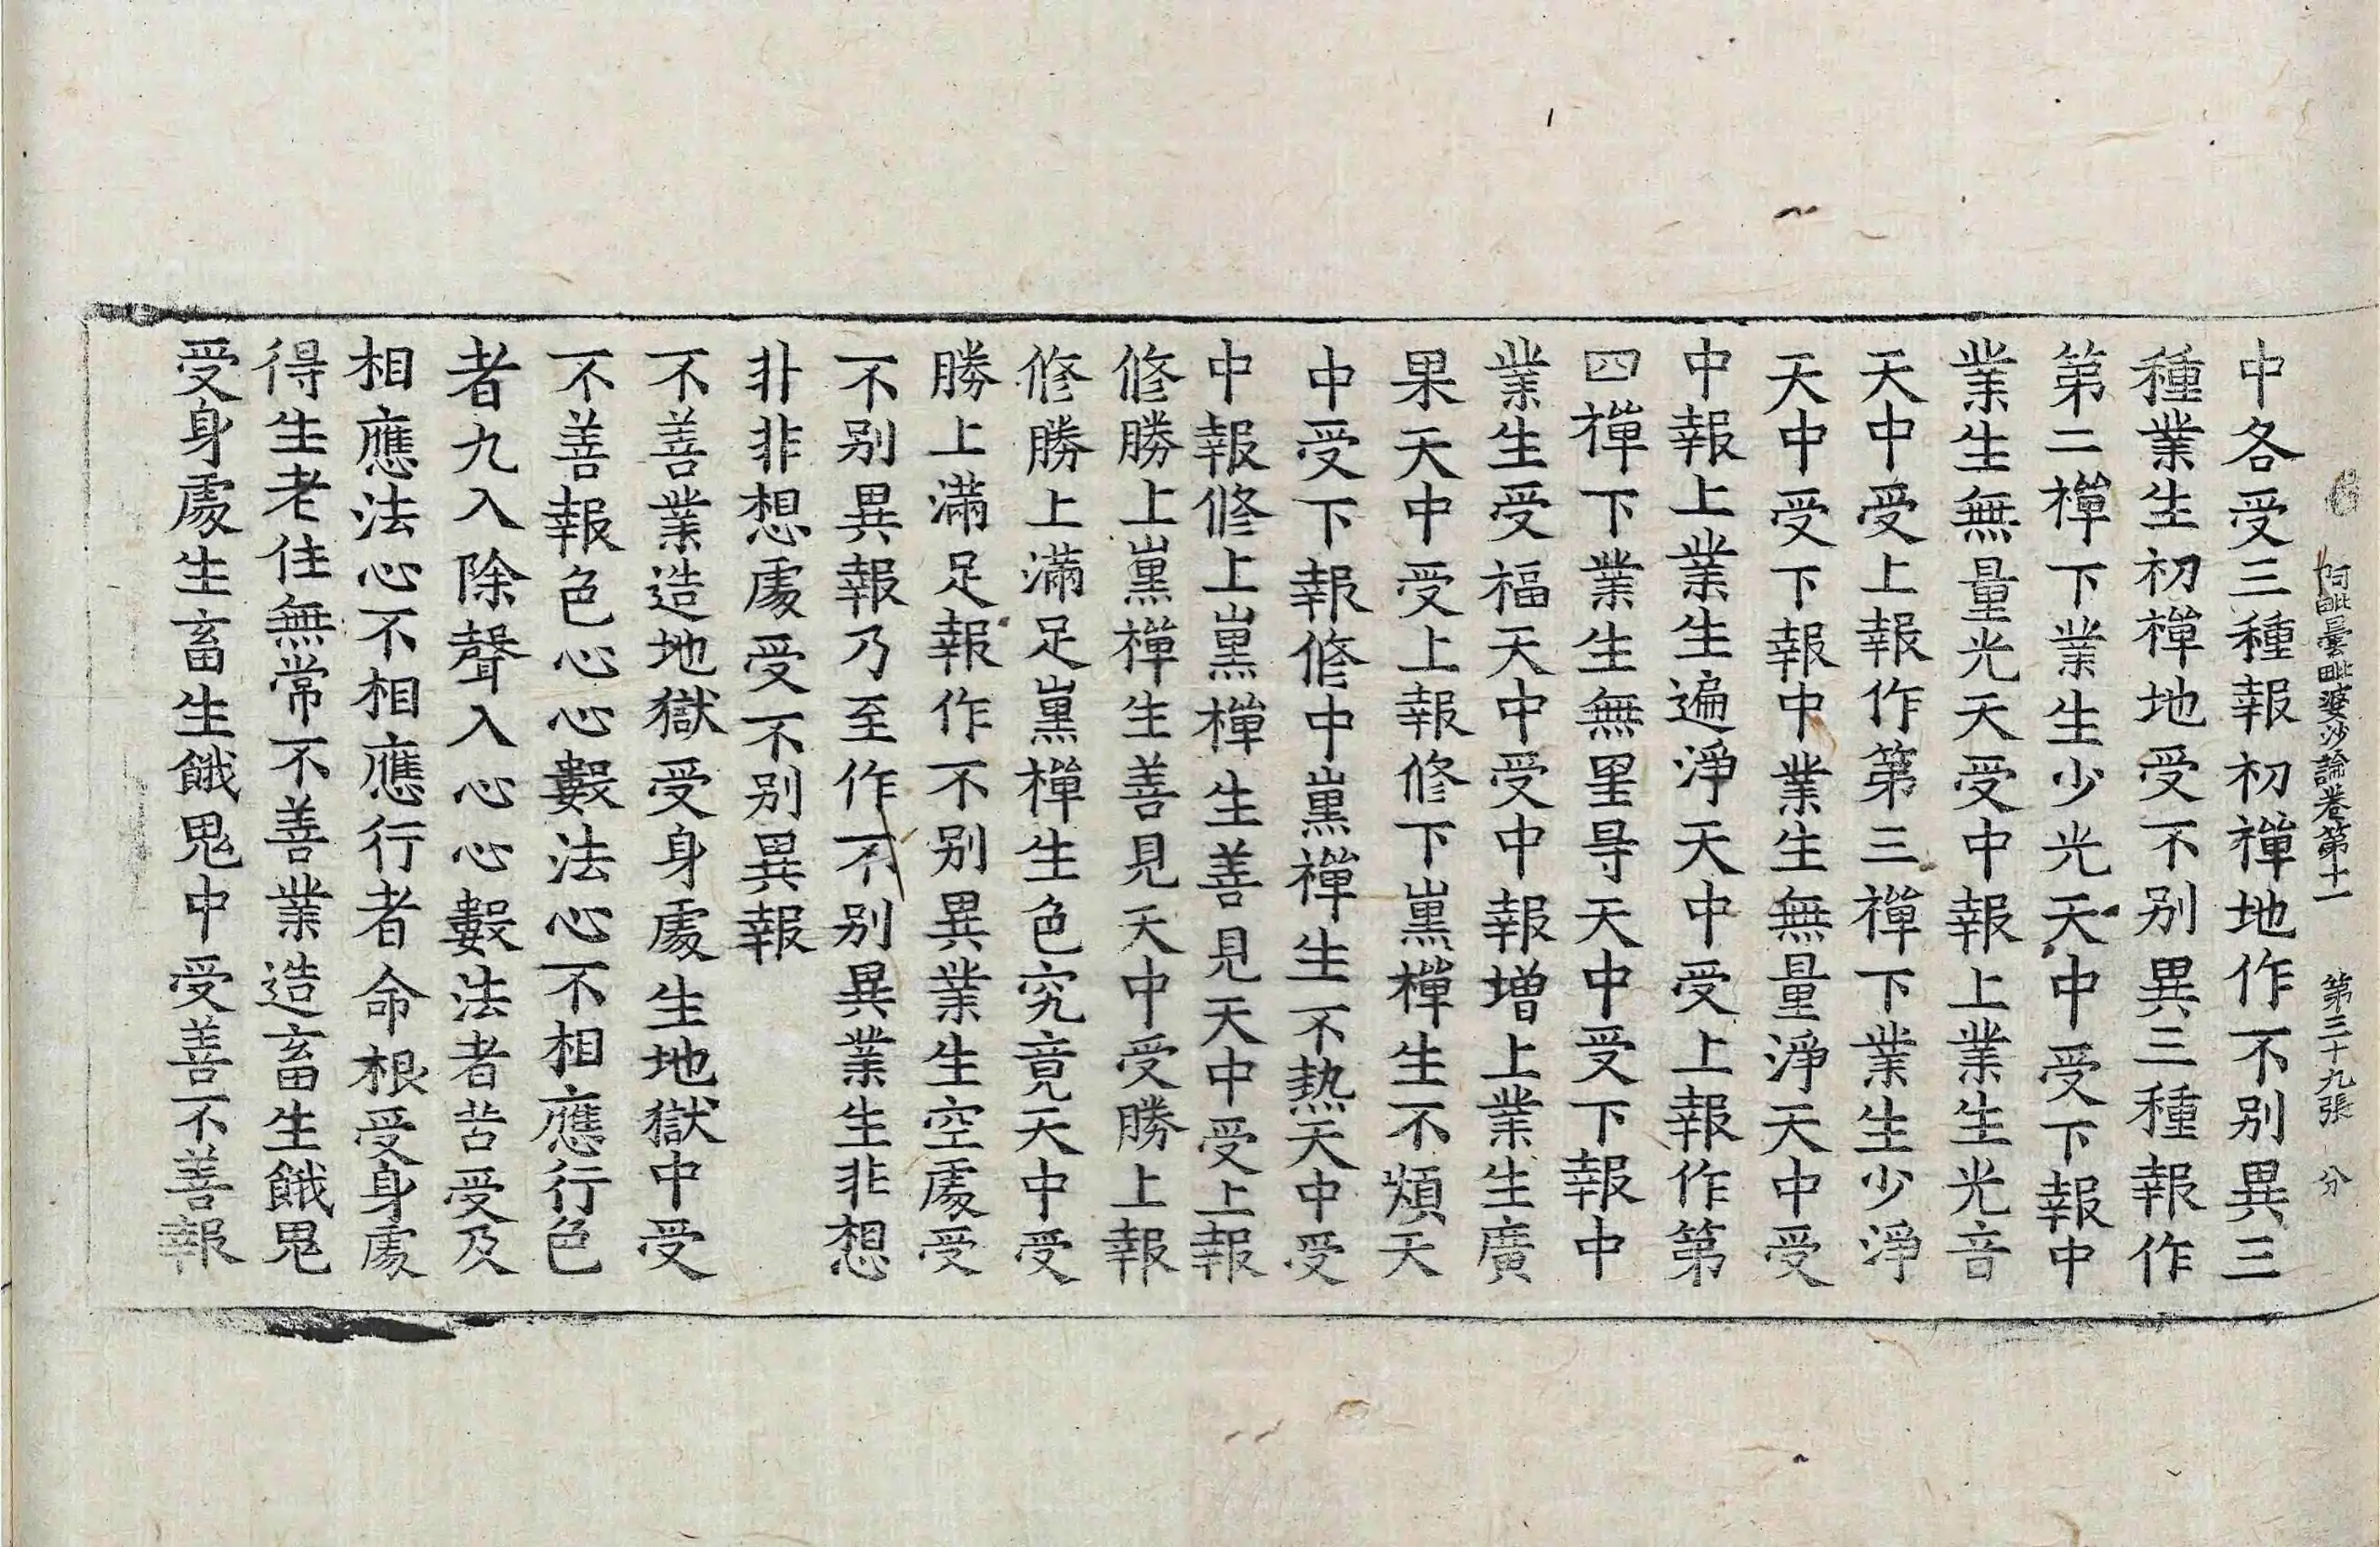 阿毗曇毗婆沙論卷第十一 第三十九張 分
中各受三種報初禪地作不別異三
種業生初禪地受不別異三種報作
第二禪下業生少光天中受下報中
業生無量光天受中報上業生光音
天中受上報作第三禪下業生少淨
天中受下報中業生無量淨天中受
中報上業生遍淨天中受上報作第
四禪下業生無罣㝵天中受下報中
業生受福天中受中報增上業生廣
果天中受上報修下熏禪生不煩天
中受下報修中熏禪生不熱天中受
中報修上熏禪生善見天中受上報
修勝上熏禪生善見天中受勝上報
修勝上滿足熏禪生色究竟天中受
勝上滿足報作不別異業生空處受
不別異報乃至作不別異業生非想
非非想處受不別異報
不善業造地獄受身處生地獄中受
不善報色心心數法心不相應行色
者九入除聲入心心數法者苦受及
相應法心不相應行者命根受身處
得生老住無常不善業造畜生餓鬼
受身處生畜生餓鬼中受善不善報